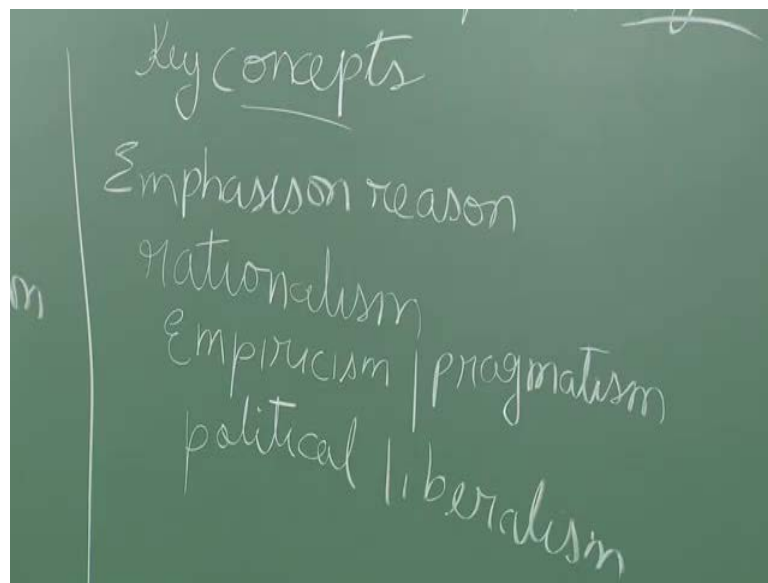 Key concepts
Emphasis on reason
rationalism
Empiricism / pragmatism
political liberalism